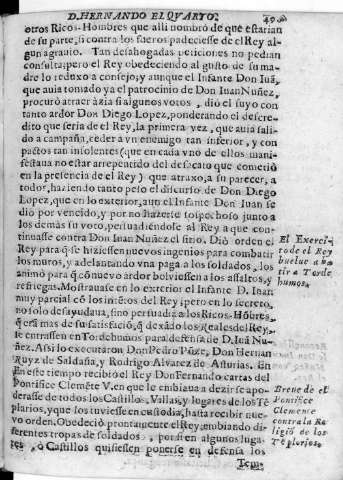 D. HERNANDO EL QVARTO.
49
otros Ricos-Hombres que alli nombrò de que estarian
de su parte, si contra los fueros padeciesse de el Rey al-
gun agrauio. Tan desahogadas peticiones no pedian
consulta; pero el Rey obedeciendo al gusto de su ma-
dre lo reduxo a consejo; y aunque el Infante Don Iuã,
que auia tomado ya el patrocinio de Don Iuan Nuñez,
procurò atraer àzia si algunos votos, diò el suyo con
tanto ardor Don Diego Lopez, ponderando el descre-
dito que seria de el Rey, la primera vez, que auia sali-
do a campaña, ceder a vn enemigo tan inferior, y con
pactos tan insolentes (que en cada vno de ellos mani-
festaua no estar arrepentido del desacato que cometiò
en la presencia de el Rey) que atraxo, a su parecer, a
todos, haziendo tanto peso el discurso de Don Diego
Lopez, que en lo exterior, aun el Infante Don Iuan se
diò por vencido, y por no hazerse sospechoso junto a
los demàs su voto, persuadiendose al Rey a que con-
tinuasse contra Don Iuan Nuñez el sitio. Diò orden el
Rey para que se hiziessen nuevos ingenios para combatir
los muros, y adelantando vna paga a los soldados, los
animò para q̃ cõ nuevo ardor bolviessen a los assaltos, y
refriegas. Mostrauase en lo exterior el Infante D. Iuan
muy parcial cõ los intères del Rey; pero en lo secreto,
no solo desayudaua, sino persuadia a los Ricos-Hõbres,
q̃ erà mas de su satisfaciõ, q̃ dexãdo los Reales del Rey,
se entrassen en Tordehumos para defensa de D. Iuã Nu-
ñez. Assi lo executaron Don Pedro Põze, Don Hernan
Ruyz de Saldaña, y Rodrigo Alvarez de Asturias. En
este tiempo recibiò el Rey Don Fernando cartas del
Pontifice Clemẽte V. en que le embiaua a dezir se apo-
derasse de todos los Castillos, Villas, y lugares de los Tẽ-
plarios, y que los tuviesse en custodia, hasta recibir nue-
vo orden. Obedeciò prontamente el Rey, embiando di-
ferentes tropas de soldados, por si en algunos luga-
res, ò Castillos quisiessen ponerse en defensa los
Tem-
El Exerci-
to de el Rey
buelue a ba
tir a Torde
humos.
Breue de el
Pontifice
Clemente
contra la Re
ligiõ de los
Tẽplarios.